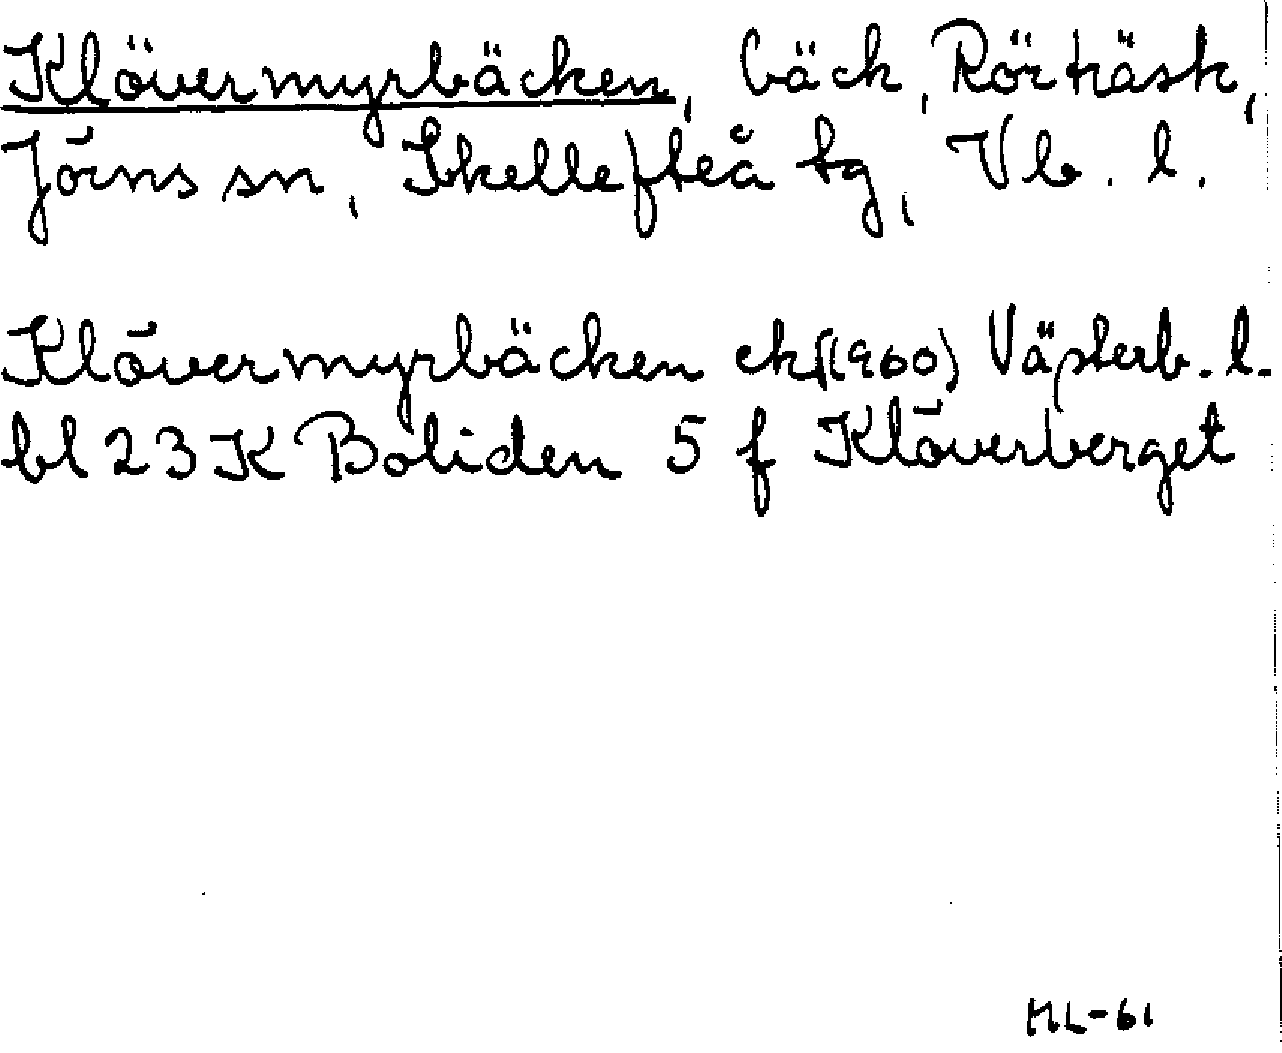 Klövermyrbäcken, bäck, Rörträsk,
Jörns sn, Skellefteå tg, Vb. l.
Klövermyrbäcken ek (1960) Västerb. l.
bl 23 K Boliden 5 f Klöverberget
ML-61